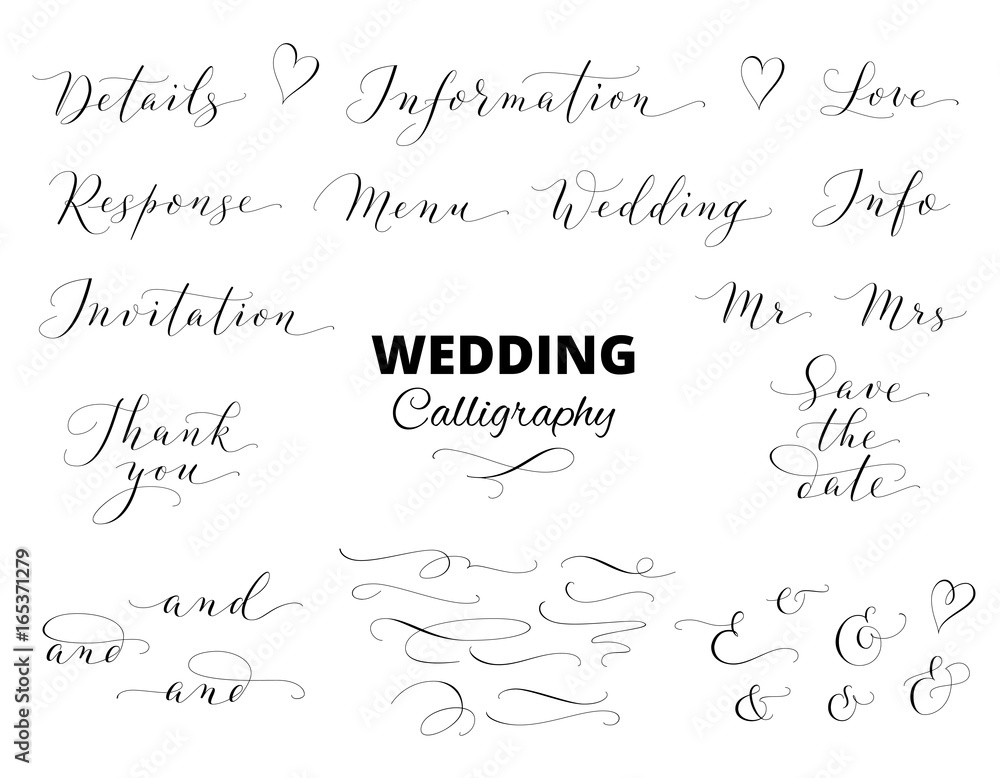 Details Information Love
Response Menu Wedding Info
Invitation Mr Mrs
WEDDING
Calligraphy
Thank
you
Save
the
date
and
and
and
& & &
& & &
Adobe Stock | #165371279